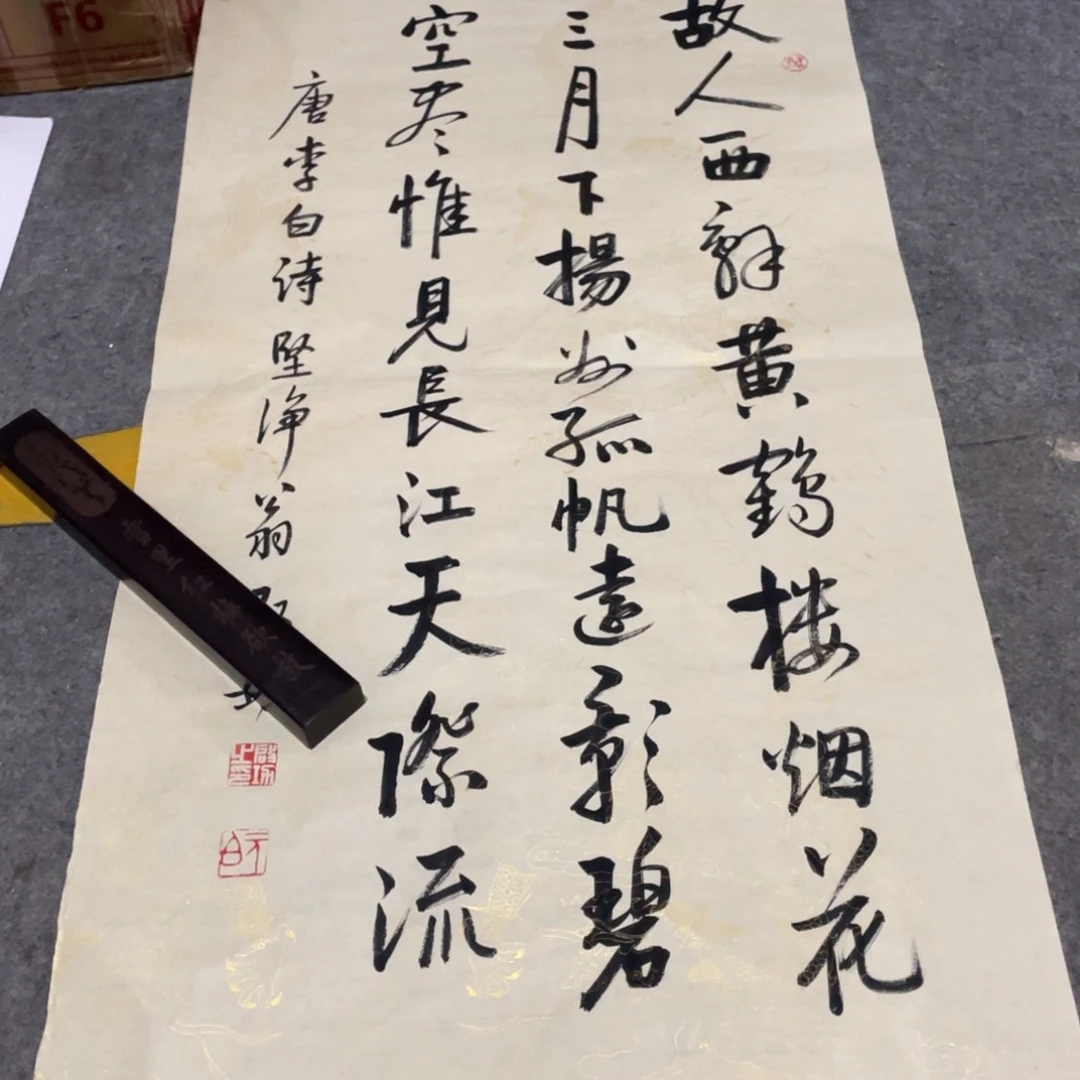 故人西辤黄鶴楼烟花
三月下揚州孤帆遠影碧
空尽惟見長江天際流
唐李白诗 堅净翁
F6